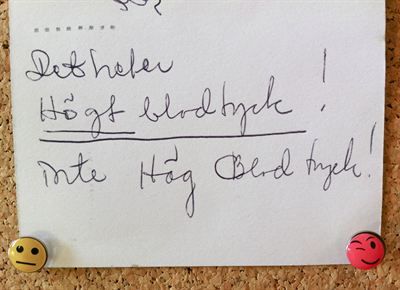 Det heter
Högt blodtyck !
inte Hög Blod tryck!